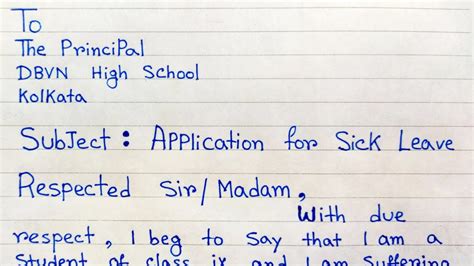 To
The PrinciPal
DBVN High School
Kolkata
SubJect : APPlication for Sick Leave
Respected Sir/Madam,
With due
respect, I beg to Say that I am a
Student of class ix and I am Suffering